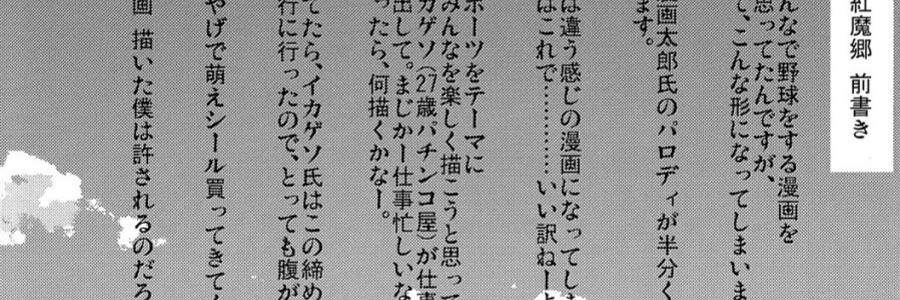 紅魔郷 前書き
んなで野球をする漫画を
思ってたんですが、
て、こんな形になってしまいま
画太郎氏のパロディが半分く
ます。
は違う感じの漫画になってしま
はこれで…………いい訳ねーと
ポーツをテーマに
みんなを楽しく描こうと思って
カゲソ(27歳パチンコ屋)が仕事
出して。まじかー仕事忙しいな
ったら、何描くかなー。
てたら、イカゲソ氏はこの締め
行に行ったので、とっても腹が
やげで萌えシール買ってきてく
画 描いた僕は許されるのだろ